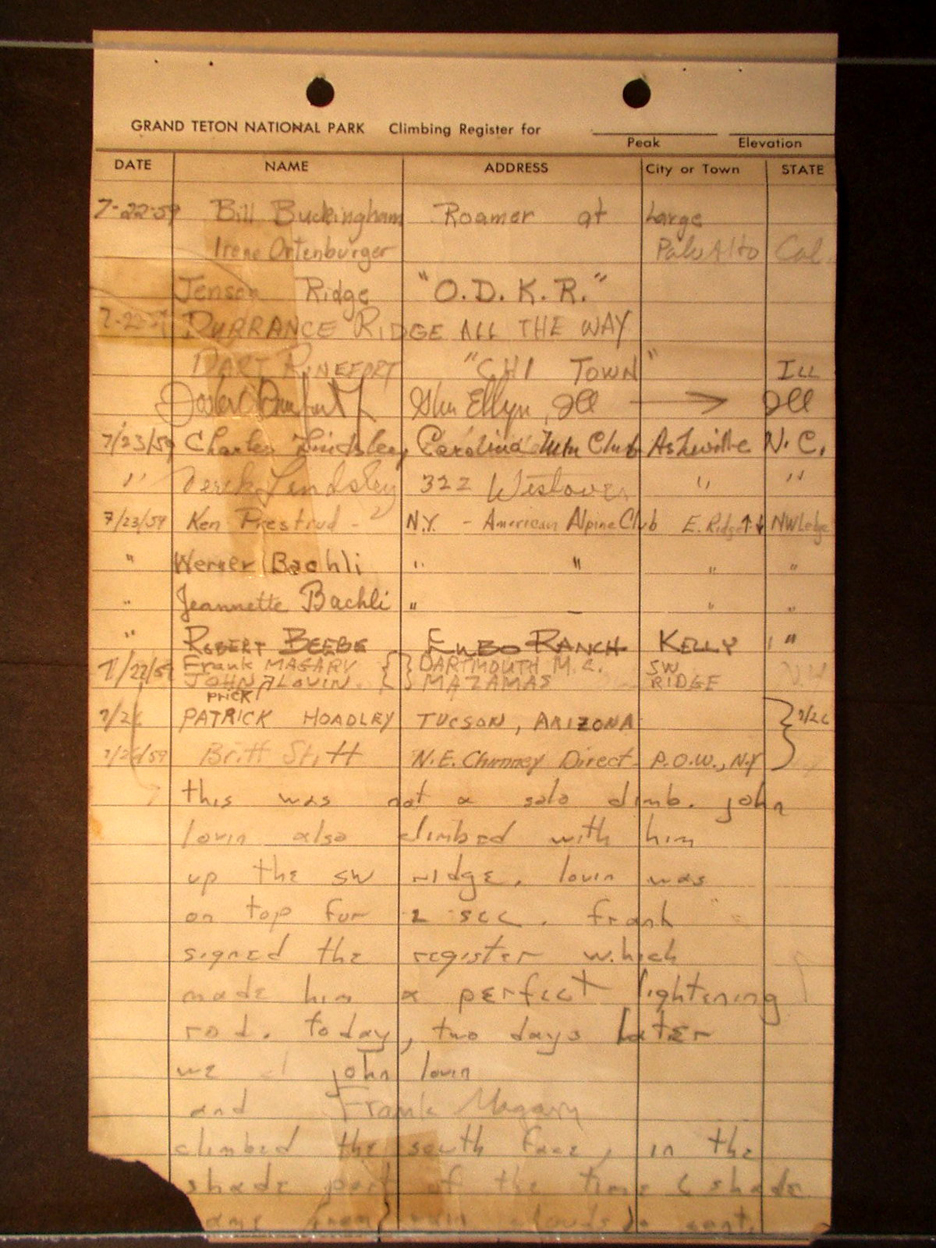 GRAND TETON NATIONAL PARK Climbing Register for
Peak Elevation
DATE NAME ADDRESS City or Town STATE
7-22-59 Bill Buckingham Roamer at Large
Irene Ortenburger Palo Alto Cal.
Jensen Ridge "O.D.K.R."
7-22- DURRANCE RIDGE ALL THE WAY
"CHI TOWN" ILL
Glen Ellyn, Ill → Ill
7/23/59 Charles Lindsley Carolina Mtn Club Asheville N.C.
" Derek Lindsley 322 Westover " "
7/23/59 Ken Prestrud - N.Y. - American Alpine Club E. Ridge ↑↓ NW Ledge
" Werner Bachli " " " "
" Jeannette Bachli " " "
" ROBERT BEEBE RANCH KELLY "
7/22/59 Frank MAGARY { } DARTMOUTH M.C. SW
JOHN LOVIN. MAZAMAS RIDGE
PRICK
7/26 PATRICK HOADLEY TUCSON, ARIZONA } 7/26
7/26/59 Britt Stitt N.E. Chimney Direct - P.O.W., N.Y
this was not a solo climb. john
lovin also climbed with him
up the sw ridge. lovin was
on top for 2 sec. frank
signed the register which
made him a perfect lightening
rod. today, two days later
we john lovin
and Frank Magary
climbed the south face, in the
shade part of the time & shade
from rain clouds